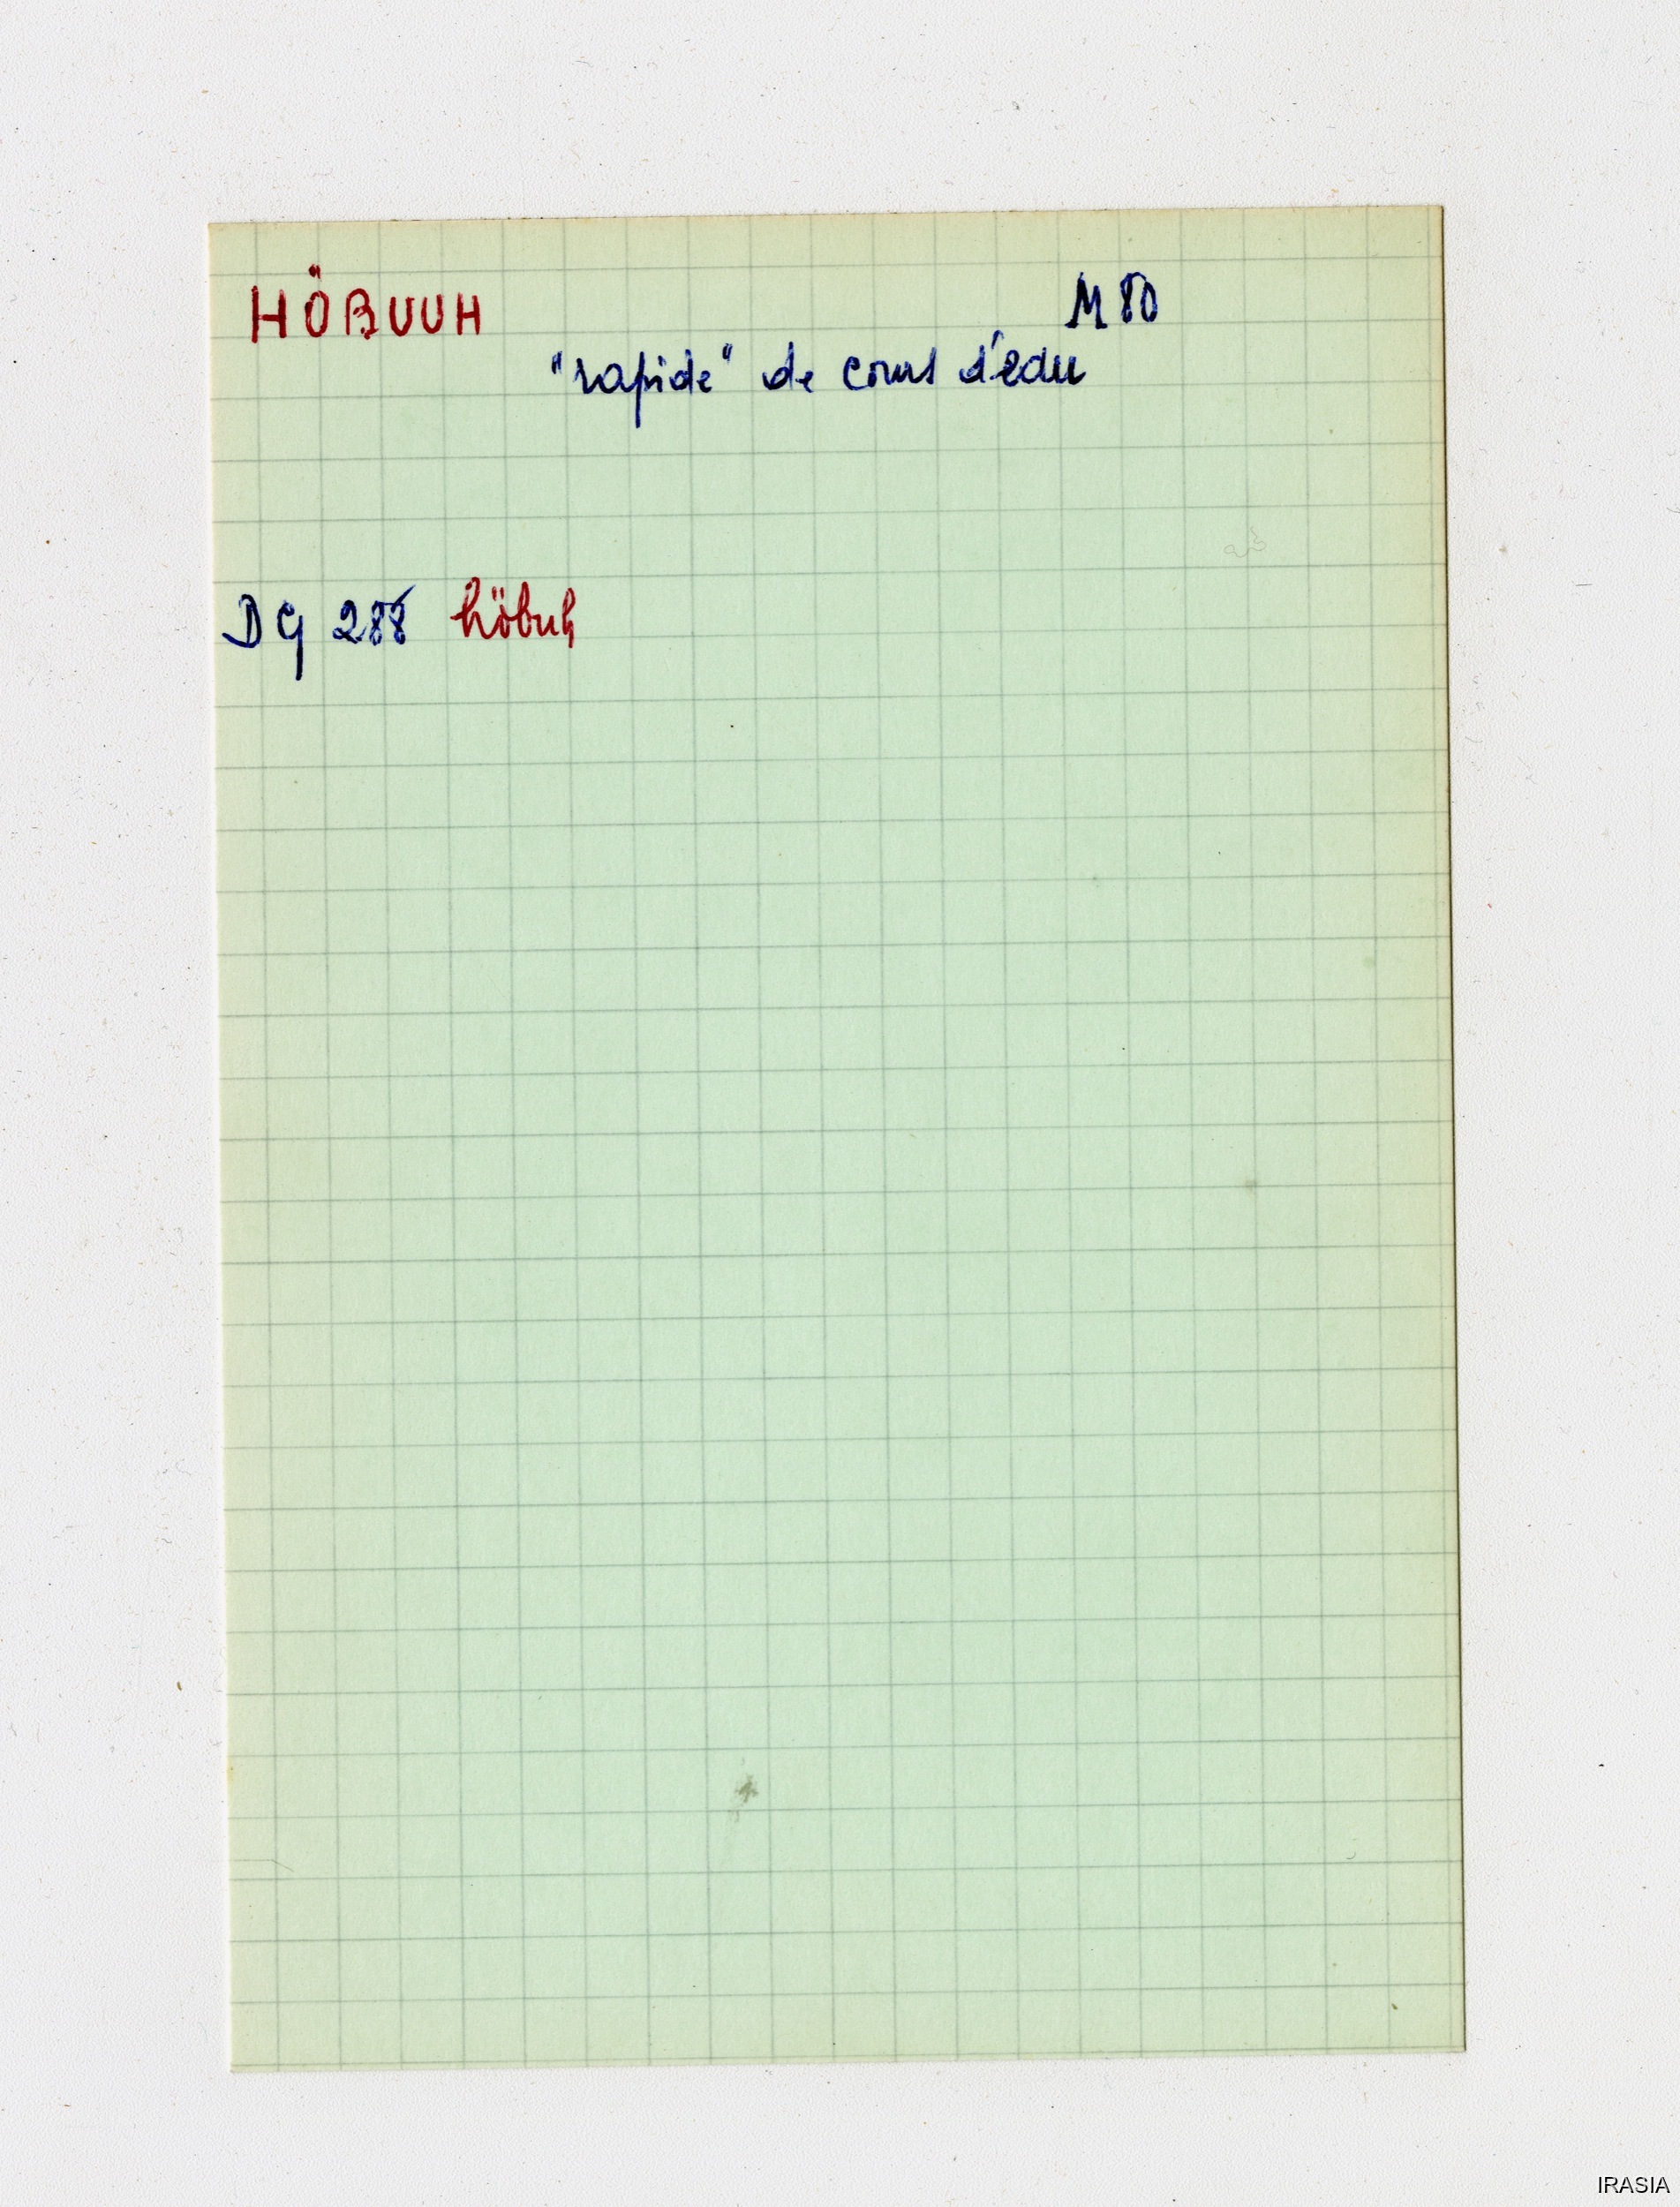 HÖBUUH M 80
"rapide" de cours d'eau
DG 288 höbuh
IRASIA